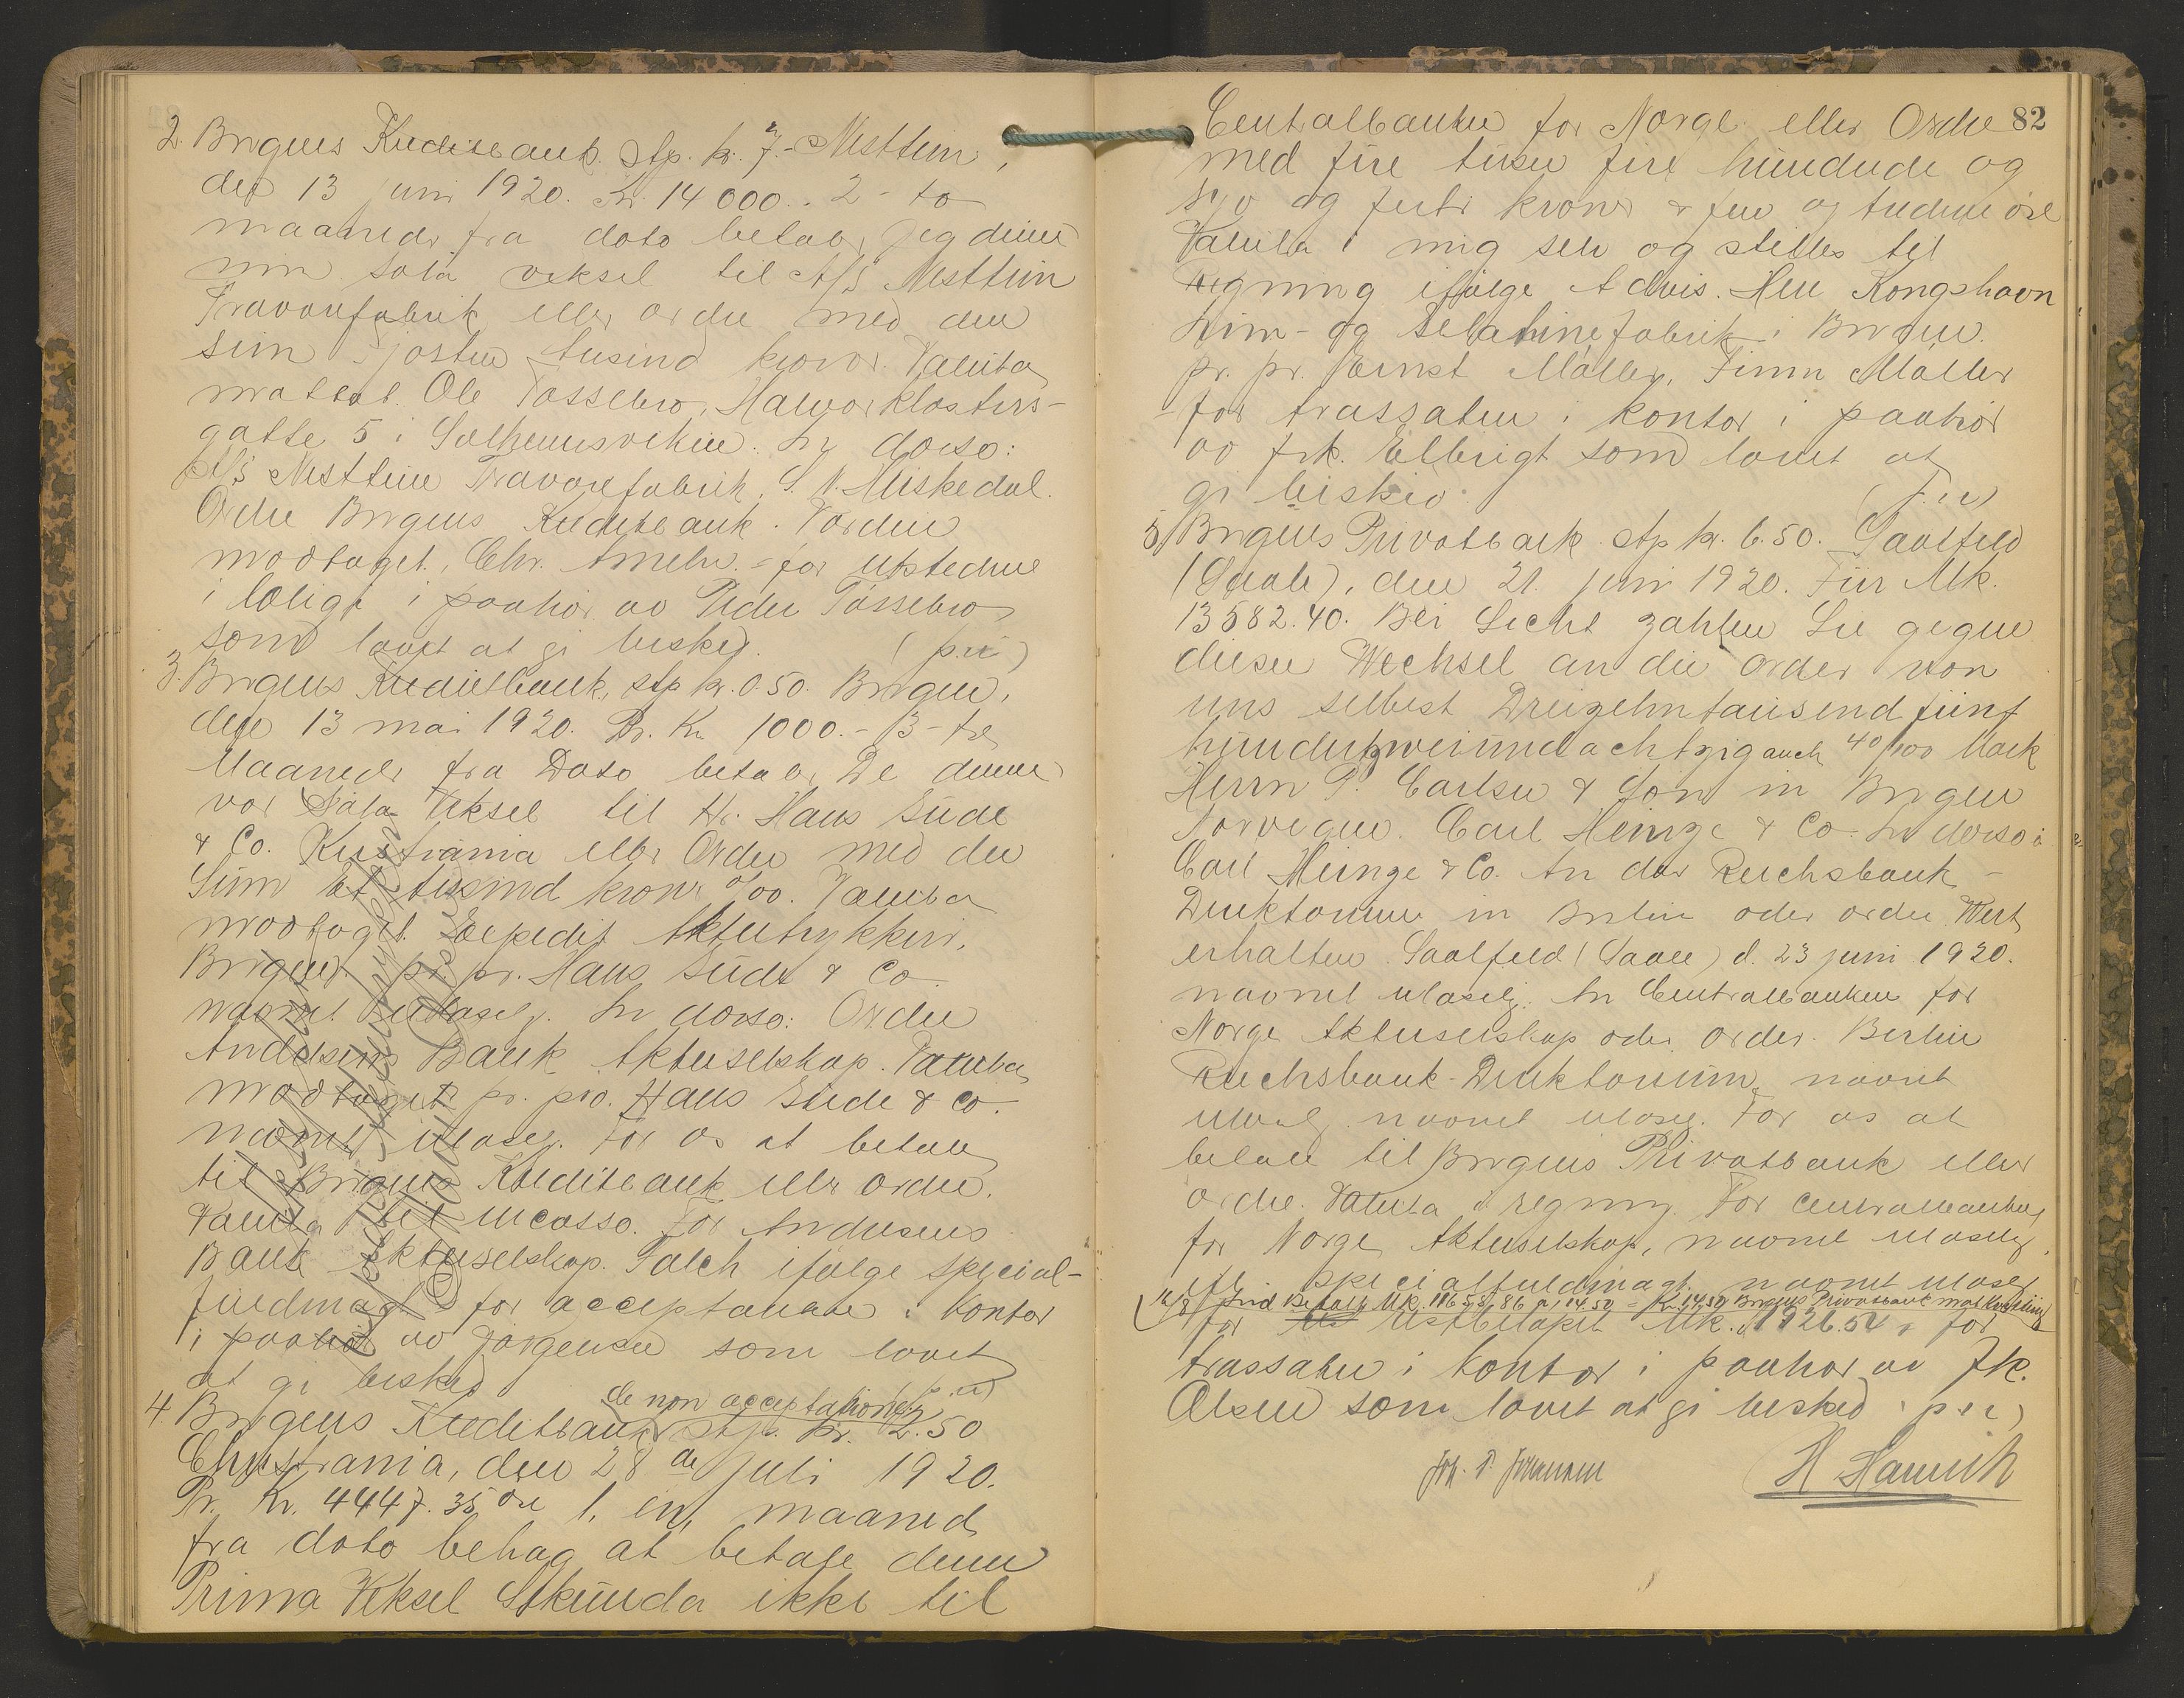 2. Bergens Kreditbank. Stp. kr. 7.- Nesttun,
den 13 juni 1920. Kr. 14 000.. 2 - to
maaneder fra dato betaler jeg denne
min sola veksel til A/S Nesttun
Travarefabrik eller ordre med den
sum fjorten tusind kroner. Valuta
mottat. Ole Tøssebro, Halvor Klosters-
gatte 5 i Solheimsviken. In dorso:
A/S Nesttun Travarefabrik,
Ordre Bergens Kreditbank. Værdien
modtaget, Chr. - for utstederne
i i paahør av Peder Tøssebro
som lovet at gi besked. (p.n)
3. Bergens Kreditbank, stp kr. 0.50. Bergen,
den 13 mai 1920. Pr. Kr. 1000.- 3 - tre
Maaneder fra Dato betaler De denne
vor Sola Veksel til Hr. Hans Sude
& Co. Kristiania eller Ordre med den
Sum Et tusind kroner 0/00. Valuta
modtaget. Expedit Aktietrykkeri,
Bergen. pr. pr. Hans Sude & Co.
navnet ulæselg. In dorso: Ordre
Andresens Bank Aktieselskap. Valuta
modtaget pr. pro. Hans Sude & Co.
navnet ulæselg. For os at betale
til Bergens Kreditbank eller ordre.
Valuta til incasso. For Andresens
Bank Aktieselskap. Falch ifølge special-
fuldmagt - for acceptanten i kontor
i paahør av Jørgensen som lovet
at gi besked (p.n)
4. Bergens Kreditbank stp. kr. 2.50 de non acceptationem
Christiania, den 28de Juli 1920.
Pr. Kr. 4447.35 øre 1, en, maaned
fra dato behag at betale denne
Prima Veksel Sekunda ikke til
82
Centralbanken for Norge eller Ordre
med fire tusen fire hundrede og
syv og førti kroner & fem og tredive øre
Valuta i mig selv og stilles til
Regning ifølge Advis. Herr Kongshavn
Lim- og Gelatinefabrik i Bergen.
pr. pr. Ernst Møller, Finn Møller
- for trassaten i kontor i paahør
av frk. Ellerigt som lovet at
gi besked. (p.n)
5) Bergens Privatbank stp kr. 6.50. Saalfeld
(Saale), den 21. juni 1920. Für Mk.
13582.40. Bei Sicht zahlen Sie gegen
diesen Wechsel an die Order von
uns selbst Dreizehntausend fünf
hundertzweiundachtzig auch 40/100 Mark
Herrn P. Carlsen & Søn in Bergen
Norwegen. Carl Heinze & Co. In dorso:
Carl Heinze & Co. An das Reichsbank -
Direktorium in Berlin oder ordre Wert
erhalten. Saalfeld (Saale) d. 23 juni 1920.
navnet ulæselg. An Centralbanken for
Norge Aktieselskap oder Order. Berlin
Reichsbank-Direktorium, navnet
ulæselg navnet ulæselg. For os at
betale til Bergens Privatbank eller
ordre. Valuta i regning. For Centralbanken
for Norge Aktieselskap, navnet ulæselg
specialfuldmagt. navnet ulæselg
14/8 Ind Betalt Mk. 11655,86 à 14.50 = Bergens Privatbank
for restbeløpet Mk. 1926.54, for
trassaten i kontor i paahør av frk.
Olsen som lovet at gi besked (p.n)